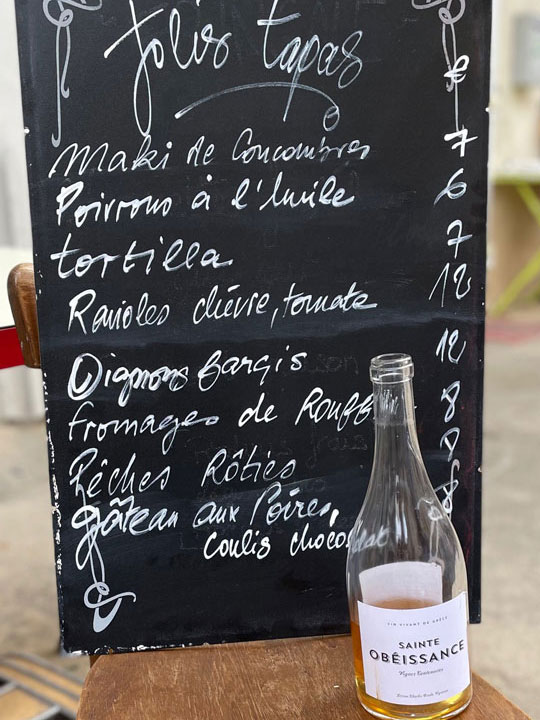 Jolis tapas
€
Maki de Concombres 7
Poivrons à l'huile 6
tortilla 7
Ravioles chèvre, tomate 12
Oignons farcis 12
fromages de 8
Pêches Rôties 8
gâteau aux Poires, 8
Coulis chocolat
VIN VIVANT DE
SAINTE
OBÉISSANCE